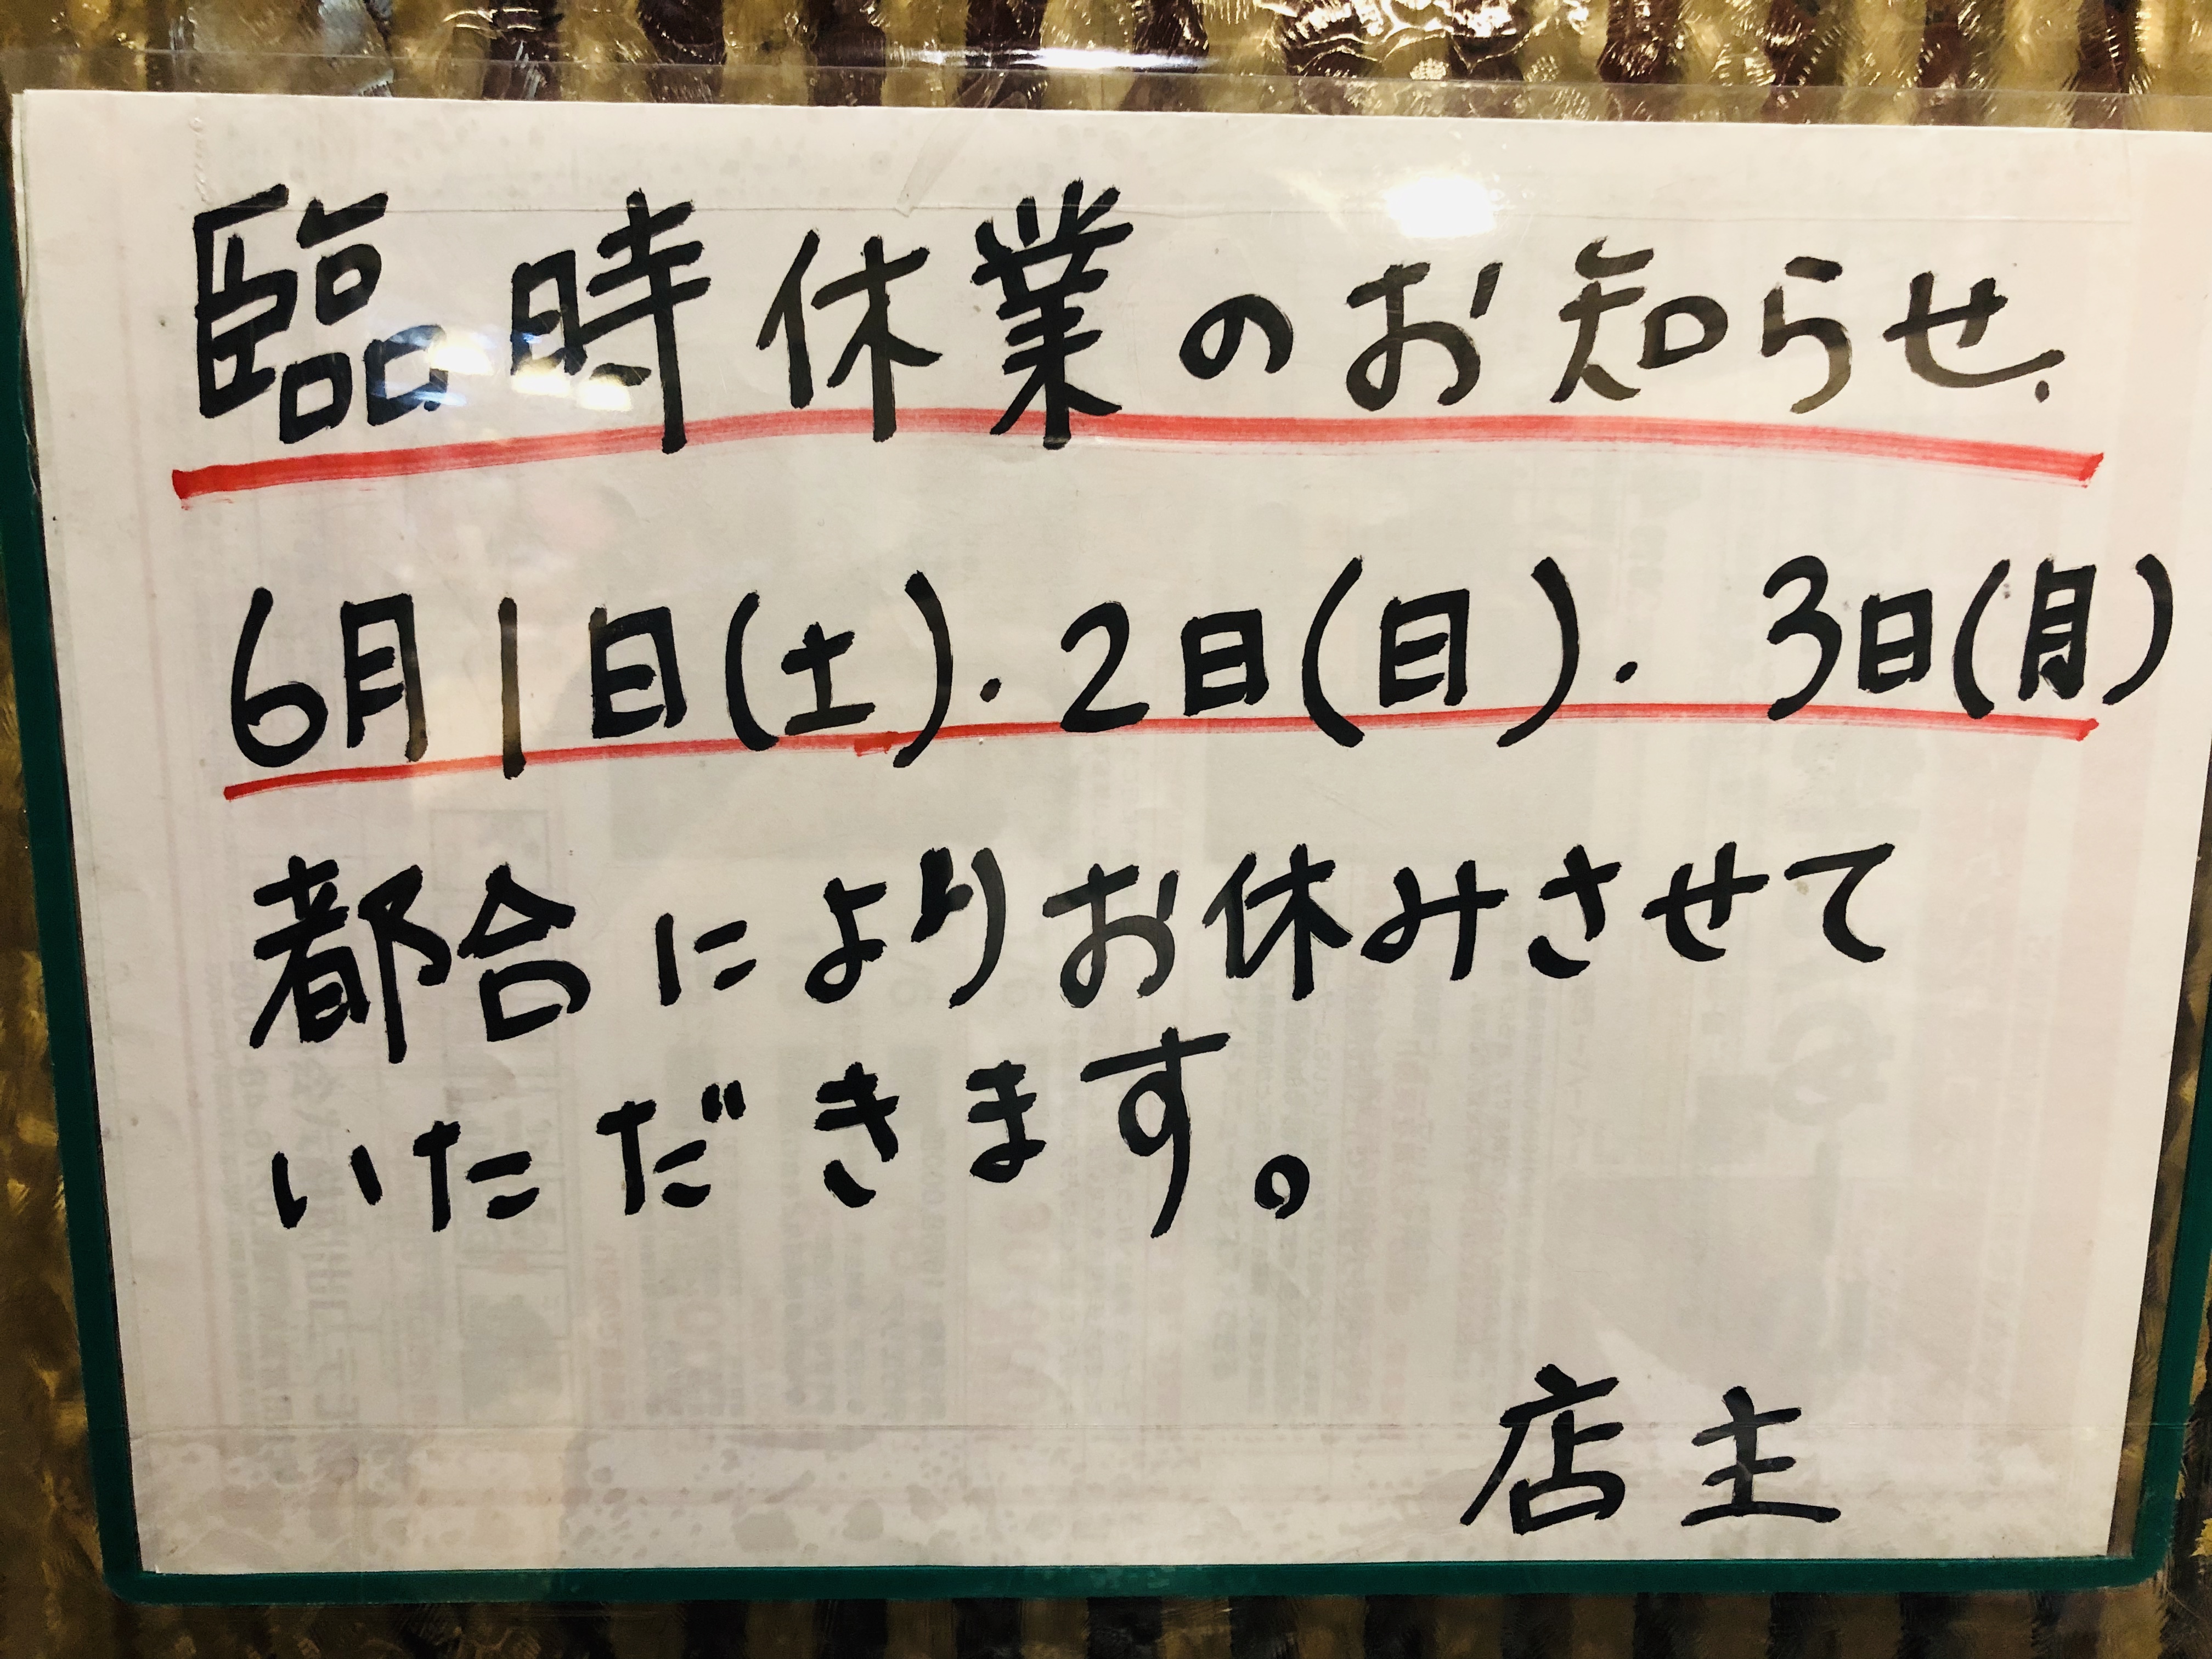 臨時休業のお知らせ.
6月1日(土)・2日(日)・3日(月)
都合によりお休みさせて
いただきます。
店主